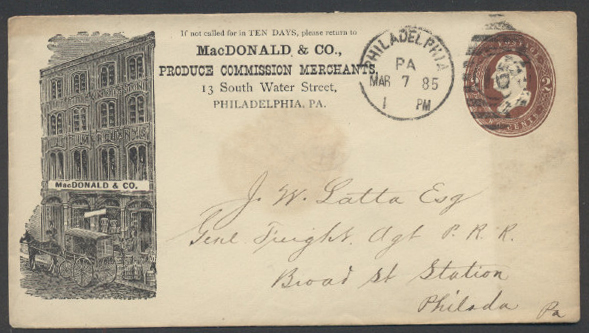 If not called for in TEN DAYS, please return to
MACDONALD & CO.,
PRODUCE COMMISSION MERCHANTS,
13 South Water Street,
PHILADELPHIA, PA.
PHILADELPHIA
PA
MAR 7 85
1 PM
CENTS
MACDONALD & CO.
J. W. Latta Esq
Genl Freight Agt P. R. R.
Broad St Station
Philada Pa